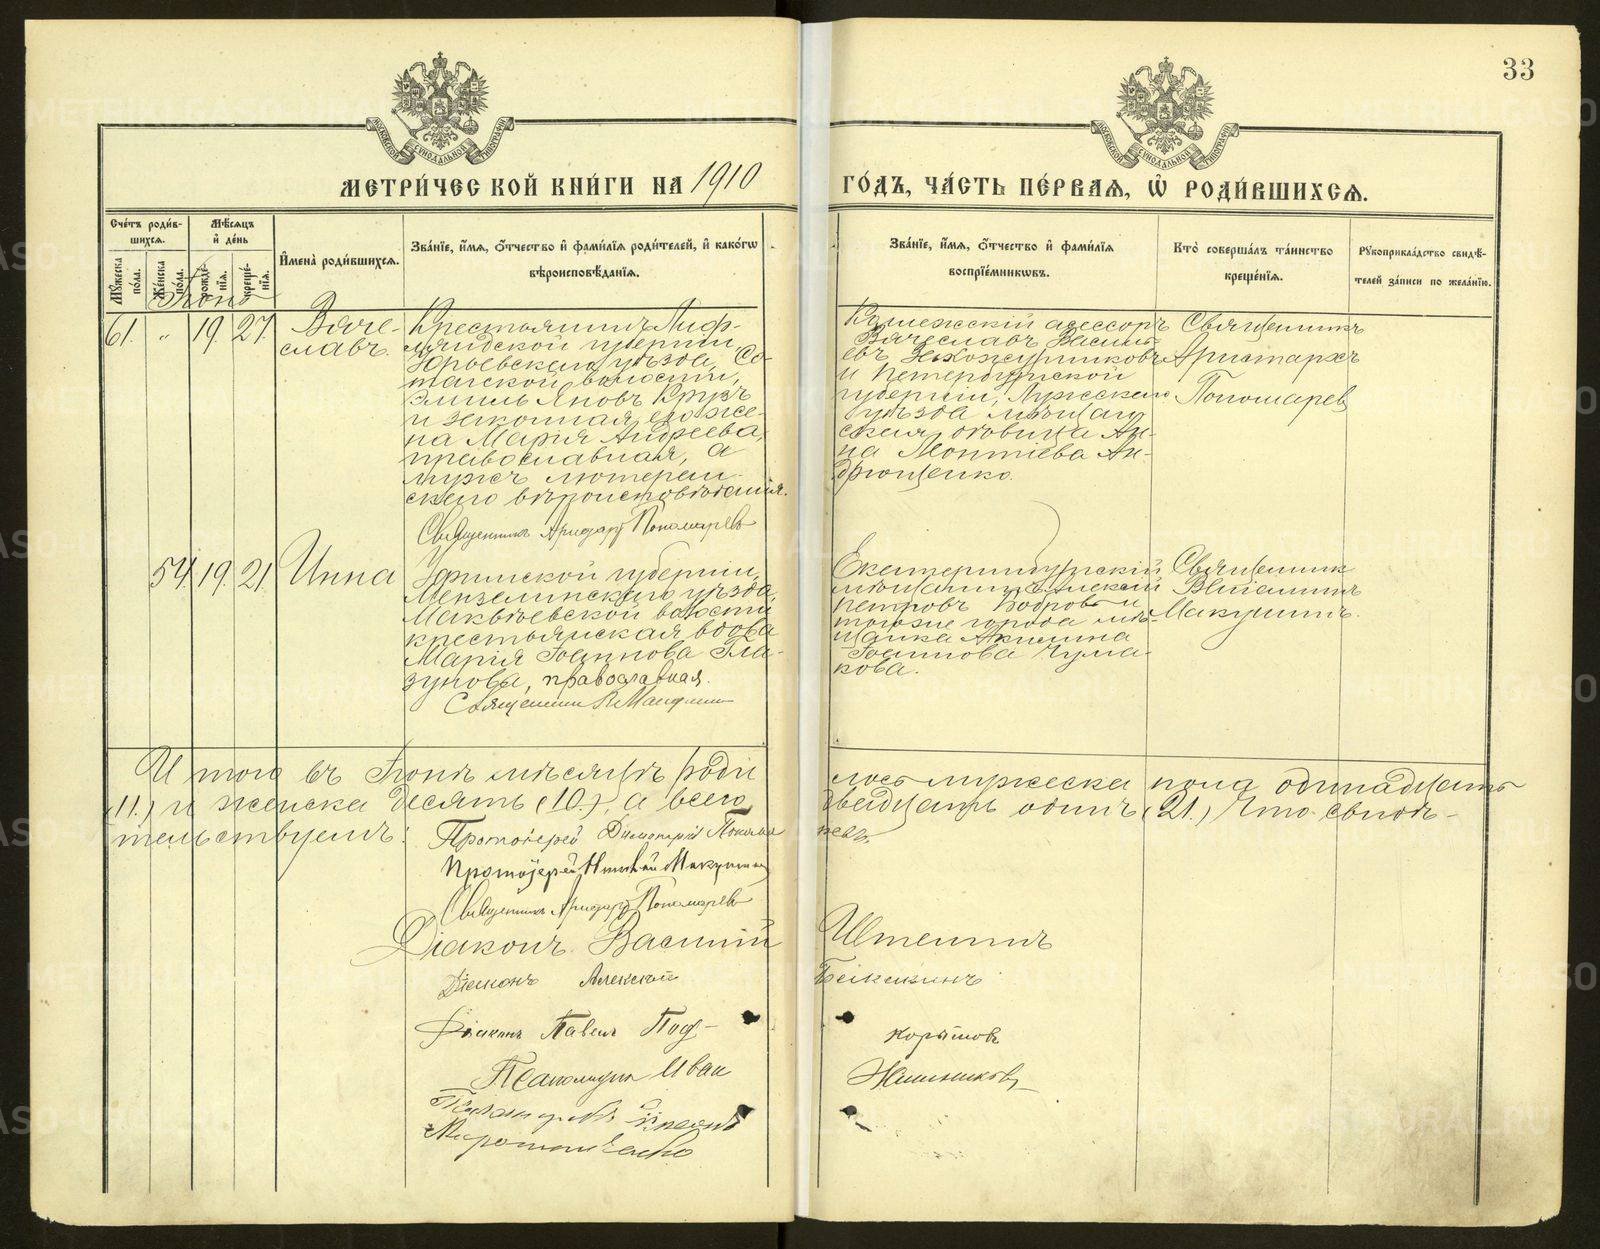 33
МОСКОВСКОЙ СѴНОДАЛЬНОЙ ТИПОГРАФІИ
МОСКОВСКОЙ СѴНОДАЛЬНОЙ ТИПОГРАФІИ
МЕТРИ́ЧЕСКОЙ КНИ́ГИ НА 1910 ГО́ДЪ, ЧА́СТЬ ПЕ́РВАЯ, Ѡ РОДИ́ВШИХСЯ.
Сче́тъ роди́в-
шихся.
Мѣ́сяцъ
и де́нь
Му́жеска по́ла.
Же́нска по́ла.
рожде́нія.
креще́нія.
Имена̀ роди́вшихся.
Зва́ніе, и́мя, о́тчество и фами́лія роди́телей, и како́гѡ
вѣроисповѣ́данія.
Зва́ніе, и́мя, о́тчество и фами́лія
воспріе́мниковъ.
Кто̀ соверша́лъ та́инство
креще́нія.
Рукоприкла́дство свидѣ́-
телей за́писи по жела́нію.
Іюнь
61. „ 19. 27. Вяче-
славъ.
Крестьянинъ Лиф-
ляндской губерніи,
Юрьевскаго уѣзда, Со-
тагской волости,
Эмиль Яновъ Крузъ
и законная его же-
на Марія Андреева,
православная, а
мужъ лютеран-
скаго вѣроисповѣданія.
Священникъ Аристархъ Пономаревъ
Коллежскій асессоръ
Вячеславъ Василь-
евъ
и Петербургской
губерніи, Лужскаго
уѣзда мѣщан-
ская дѣвица Ан-
на Леонтіева Ан-
дрющенко.
Священникъ
Аристархъ
Пономарев
54. 19. 21. Инна
Уфимской губерніи,
Мензелинскаго уѣзда,
Матвѣевской волости
крестьянская вдова
Марія Іоаннова Гла-
зунова, православная.
Священникъ В. Макушинъ
Екатеринбургскій
мѣщанинъ Алексій
Петровъ Бобровъ и
тогоже города мѣ-
щанка Акилина
Іоаннова Чума-
кова.
Священник
Веніаминъ
Макушинъ.
Итого въ Іюнѣ мѣсяцѣ роди лось мужеска пола одинадцать
(11.) и женска десять (10.), а всего двадцать одинъ (21.) Что свидѣ-
тельствуемъ:
Протоіерей Димитрій
Протоіерей Николай Макушинъ
Священникъ Аристархъ Пономаревъ
Діаконъ Василій Штеннинъ
Діаконъ Алексій
Діаконъ Павелъ Под- корытовъ
Псаломщикъ Иван